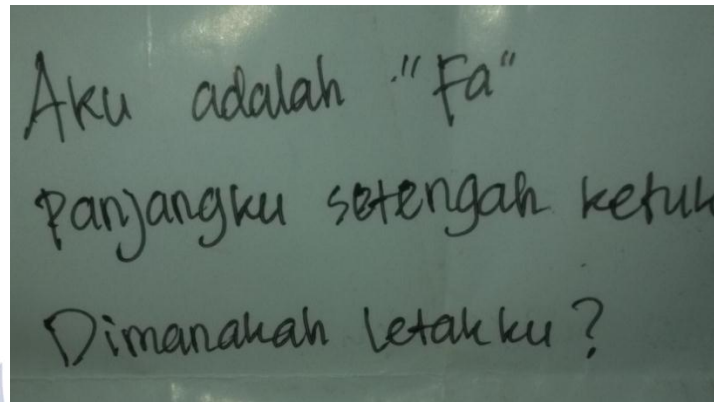 Aku adalah "Fa"
Panjangku setengah ketuk
Dimanakah letakku?